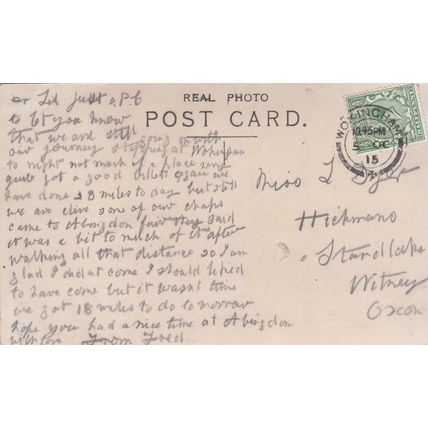 REAL PHOTO
POST CARD.
WOKINGHAM
10.45PM
5 OC
15
Dr Lil just a P.C
to let you know
that we are still going on with
our journey stopping at Wokingham
to night not much of a place we
quite got a good billets again we
have done 23 miles to day but still
we are alive some of our chaps
came to Abingdon fair they said
it was a bit to much of it after
walking all that distance so I am
glad I did not come I should liked
to have come but it wasnt time
we got 18 miles to do to morrow
hope you had a nice time at Abingdon
with love From Fred
Miss L
Hickmans
Standlake
Witney
Oxon